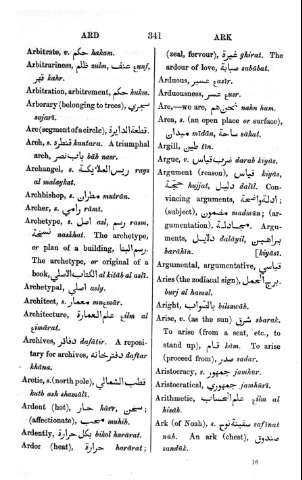 ARD 341 ARK
Arbitrate, v. حكم hakam.
Arbitrariness, ظلم zulm, عنف eunf,
قهر kahr.
Arbitration, arbitrement, حكم hukm.
Arborary (belonging to trees), شجري
sajari.
Arc (segment of a circle), قطعة الدايرة.
Arch, s. قنطرة kantara. A triumphal
arch, باب نصر bâb nasr.
Archangel, s. ريس الملايكة rays
al malaykat.
Archbishop, s. مطران mutrân.
Archer, s. رامي râmi.
Archetype, s. اصل asl, رسم rasm,
نسخة nasikhat. The archetype,
or plan of a building, رسم البنا.
The archetype, or original of a
book, الكتاب الاصلي al kitâb al asli.
Archetypal, اصلي asly.
Architect, s. معمار
Architecture, علم العمارة eilm al
eimârat.
Archives, دفاتر dafâtir. A reposi-
tary for archives, دفترخانه daftar
khâna.
Arctic, s. (north pole), قطب الشمالي
kutb ash shamâli.
Ardent (hot), حار hârr,
(affectionate), محب muhib.
Ardently, بكل حرارة bikol harârat.
Ardor (heat), حرارة harârat.
(zeal, fervour), غيرة ghirat. The
ardour of love, صبابة sabâbat.
Arduous, عسير easîr.
Arduousness, عسر eusr.
Are,—we are, نحن هم nahn ham.
Area, s. (an open place, or surface),
ميدان mîdân, ساحة sâhat.
Argill, طين tîn.
Argue, v. ضرب قياس darab kiyâs.
Argument (reason), قياس kiyâs,
حجة hujjat, دليل dalîl. Con-
vincing arguments,
(subject), مضمون madmûn; (ar-
gumentation), مجادلة. Argu-
ments, دلايل dalâyil, براهين
barâhîn. [kiyâsî.
Argumental, argumentative, قياسي
Aries (the zodiacal sign), برج الحمل
burj al hamal.
Aright, بالصواب
Arise, v. (as the sun) شرق sharak.
To arise (from a seat, etc., to
stand up), قام kâm. To arise
(proceed from), صدر sadar.
Aristocracy, s. جمهور jamhur.
Aristocratical, جمهوري jamhûri.
Arithmetic, علم الحساب eilm al
hisâb.
Ark (of Noah), s. سفينة نوح safînat
nûh. An ark (chest), صندوق
sandûk.
16